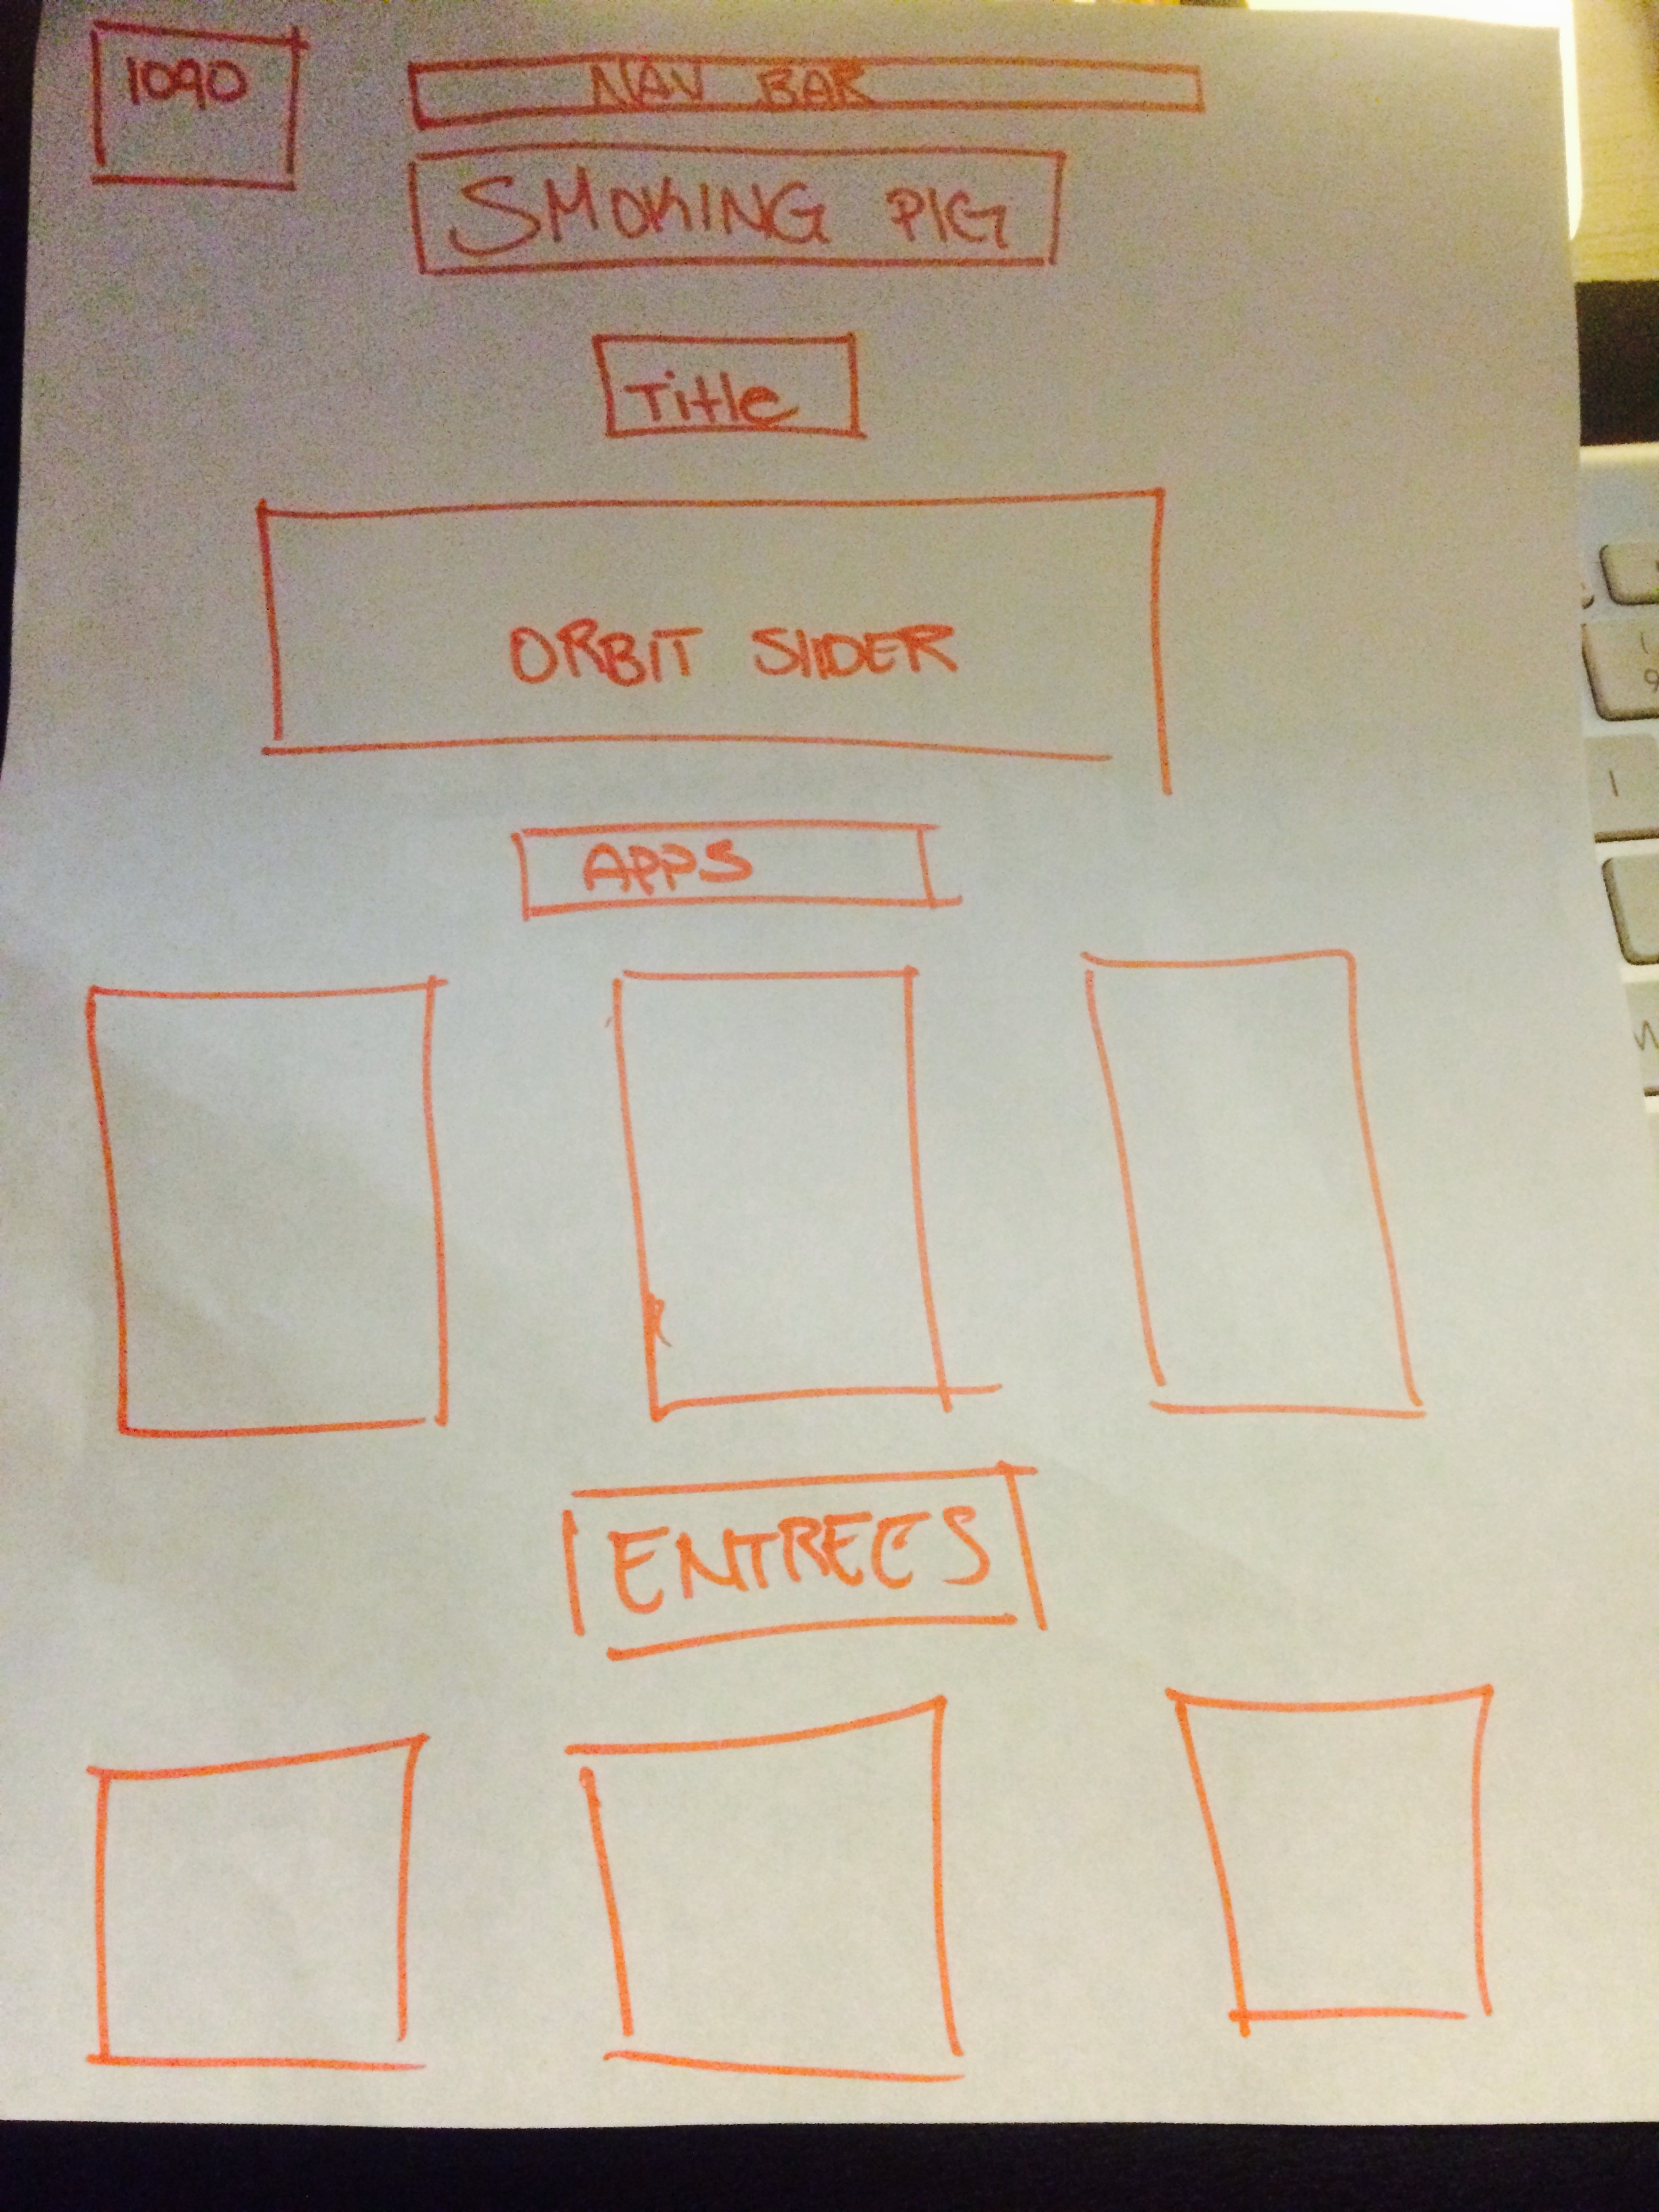 1090
NAV BAR
SMOKING PIG
Title
ORBIT SlIDER
APPS
ENTREES